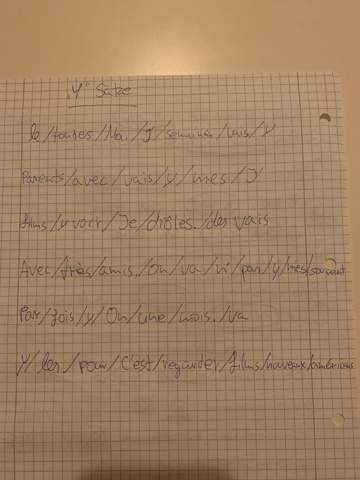 "Y" Sätze
le/toutes/No./J'/semaines/vais/y
Parents/avec/vais/y/mes/J'
films/y voir/Je/drôles./des vais
Avec/très/amis,/On/va/n'/pas/y/mes/souvent
Par/fois/y/On/une/mois./va
Y/les/pour/C'est/regarder/films/nouveaux/américains